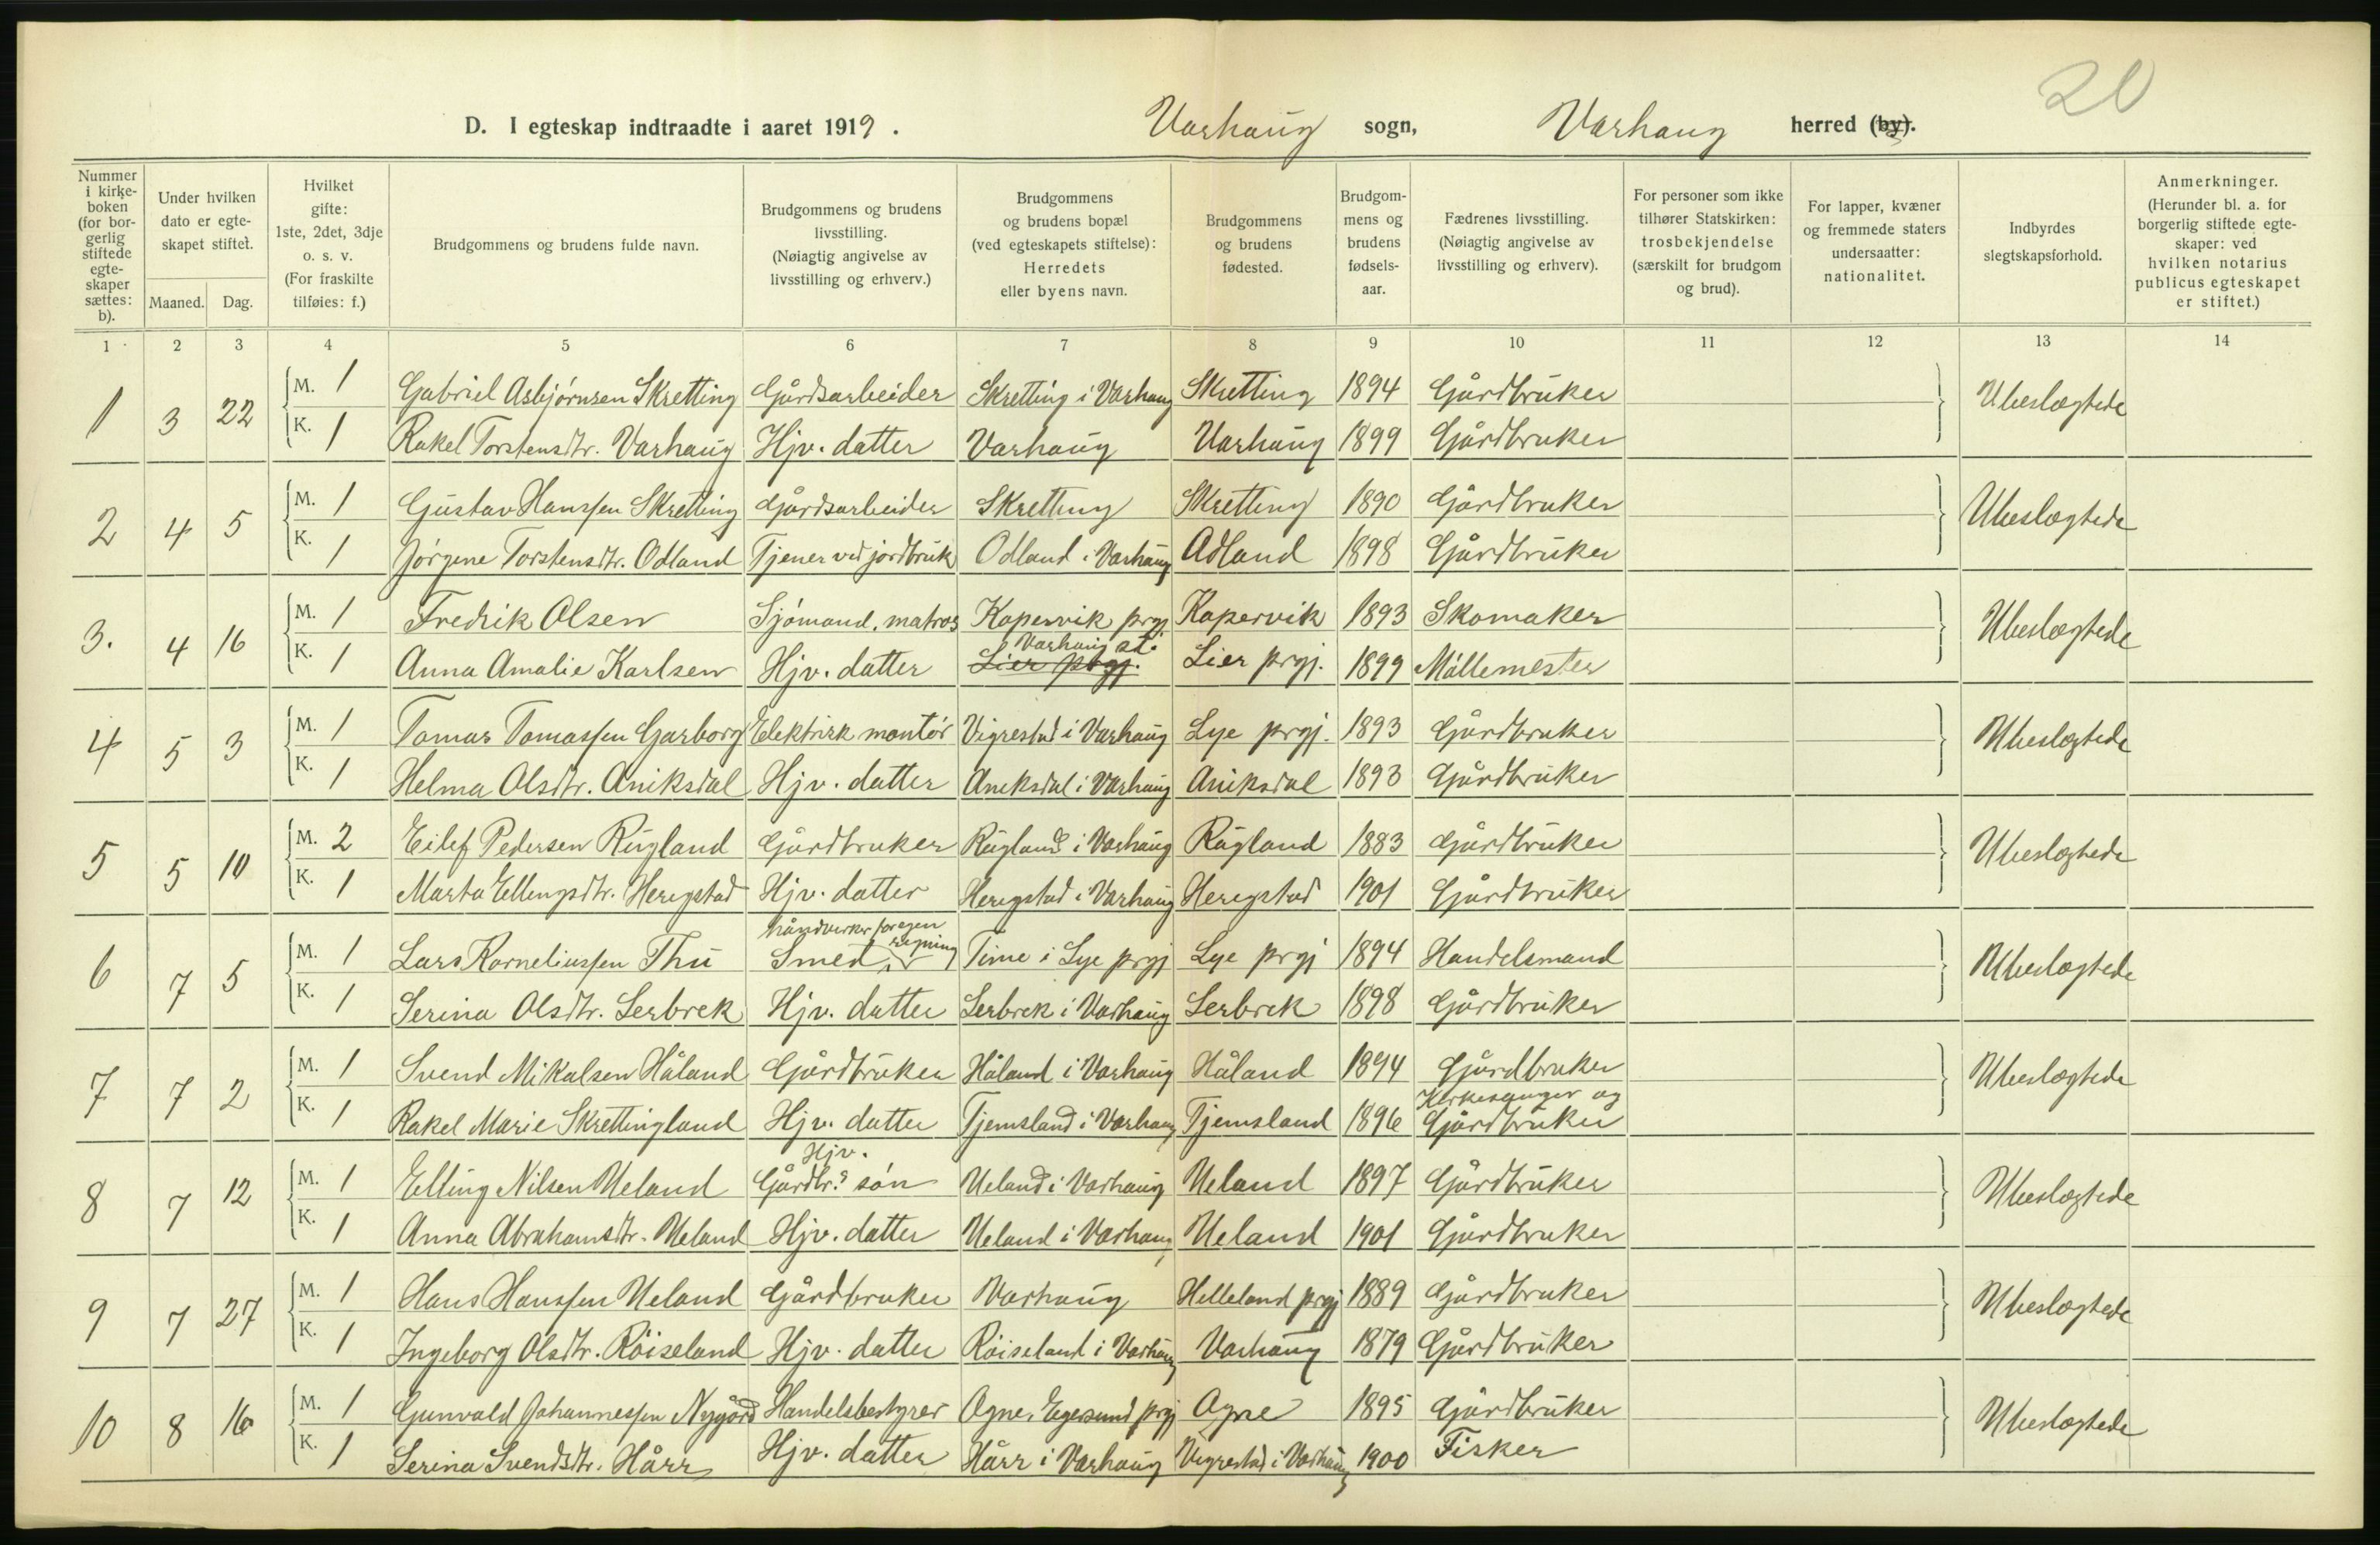 20
D. I egteskap indtraadte i aaret 1919. Varhaug sogn, Varhaug herred (by).
Nummer i kirke-boken (for bor-gerlig stiftede egte-skaper sættes: b).
Under hvilken dato er egte-skapet stiftet.
Maaned. Dag.
Hvilket gifte: 1ste, 2det, 3dje o. s. v. (For fraskilte tilføies: f.)
Brudgommens og brudens fulde navn.
Brudgommens og brudens livsstilling. (Nøiagtig angivelse av livsstilling og erhverv.)
Brudgommens og brudens bopæl (ved egteskapets stiftelse): Herredets eller byens navn.
Brudgommens og brudens fødested.
Brudgom-mens og brudens fødsels-aar.
Fædrenes livsstilling. (Nøiagtig angivelse av livsstilling og erhverv).
For personer som ikke tilhører Statskirken: trosbekjendelse (særskilt for brudgom og brud).
For lapper, kvæner og fremmede staters undersaatter: nationalitet.
Indbyrdes slegtskapsforhold.
Anmerkninger. (Herunder bl. a. for borgerlig stiftede egte-skaper: ved hvilken notarius publicus egteskapet er stiftet.)
1 2 3 4 5 6 7 8 9 10 11 12 13 14
1 3 22 M. 1 Gabriel Asbjørnsen Skretting Gårdsarbeider Skretting i Varhaug Skretting 1894 Gårdbruker Ubeslægtede
K. 1 Rakel Torstensdtr. Varhaug Hjv. datter Varhaug Varhaug 1899 Gårdbruker
2 4 5 M. 1 Gustav Hanssen Skretting Gårdsarbeider Skretting Skretting 1890 Gårdbruker Ubeslægtede
K. 1 Jørgine Torstensdtr. Odland Tjener ved jordbruk Odland i Varhaug Adland 1898 Gårdbruker
3. 4 16 M. 1 Fredrik Olsen Sjömand, matros Kopervik prgj. Kopervik 1893 Skomaker Ubeslægtede
Varhaug st.
K. 1 Anna Amalie Karlsen Hjv. datter Lier prgj. Lier prgj. 1899 Möllemester
4 5 3 M. 1 Tomas Tomassen Garborg Elektrisk montör Vigrestad i Varhaug Lye prgj. 1893 Gårdbruker Ubeslægtede
K. 1 Helma Olsdtr. Aniksdal Hjv. datter Aniksdal i Varhaug Aniksdal 1893 Gårdbruker
5 5 10 M. 2 Eilef Pedersen Rugland Gårdbruker Rugland i Varhaug Rugland 1883 Gårdbruker Ubeslægtede
K. 1 Marta Ellingsdtr. Herigstad Hjv. datter Herigstad i Varhaug Herigstad 1901 Gårdbruker
håndverker for egen regning
6 7 5 M. 1 Lars Korneliussen Thu Smed Time i Lye prgj Lye prgj 1894 Handelsmand Ubeslægtede
K. 1 Serina Olsdtr. Serbrek Hjv. datter Serbrek i Varhaug Serbrek 1898 Gårdbruker
7 7 2 M. 1 Svend Mikalsen Håland Gårdbruker Håland i Varhaug Håland 1894 Gårdbruker Ubeslægtede
Kirkesanger og
K. 1 Rakel Marie Skrettingland Hjv. datter Tjemsland i Varhaug Tjemsland 1896 Gårdbruker
Hjv.
8 7 12 M. 1 Elling Nilsen Ueland Gårdbr.s sön Ueland i Varhaug Ueland 1897 Gårdbruker Ubeslægtede
K. 1 Anna Abrahamsdtr. Ueland Hjv. datter Ueland i Varhaug Ueland 1901 Gårdbruker
9 7 27 M. 1 Hans Hanssen Ueland Gårdbruker Varhaug Helleland prgj 1889 Gårdbruker Ubeslægtede
K. 1 Ingeborg Olsdtr. Röiseland Hjv. datter Röiseland i Varhaug Varhaug 1879 Gårdbruker
10 8 16 M. 1 Gunvald Johannessen Nygård Handelsbestyrer Ogne, Egersund prgj Ogne 1895 Gårdbruker Ubeslægtede
K. 1 Serina Svendsdtr. Hårr Hjv. datter Hårr i Varhaug Vigrestad i Varhaug 1900 Fisker